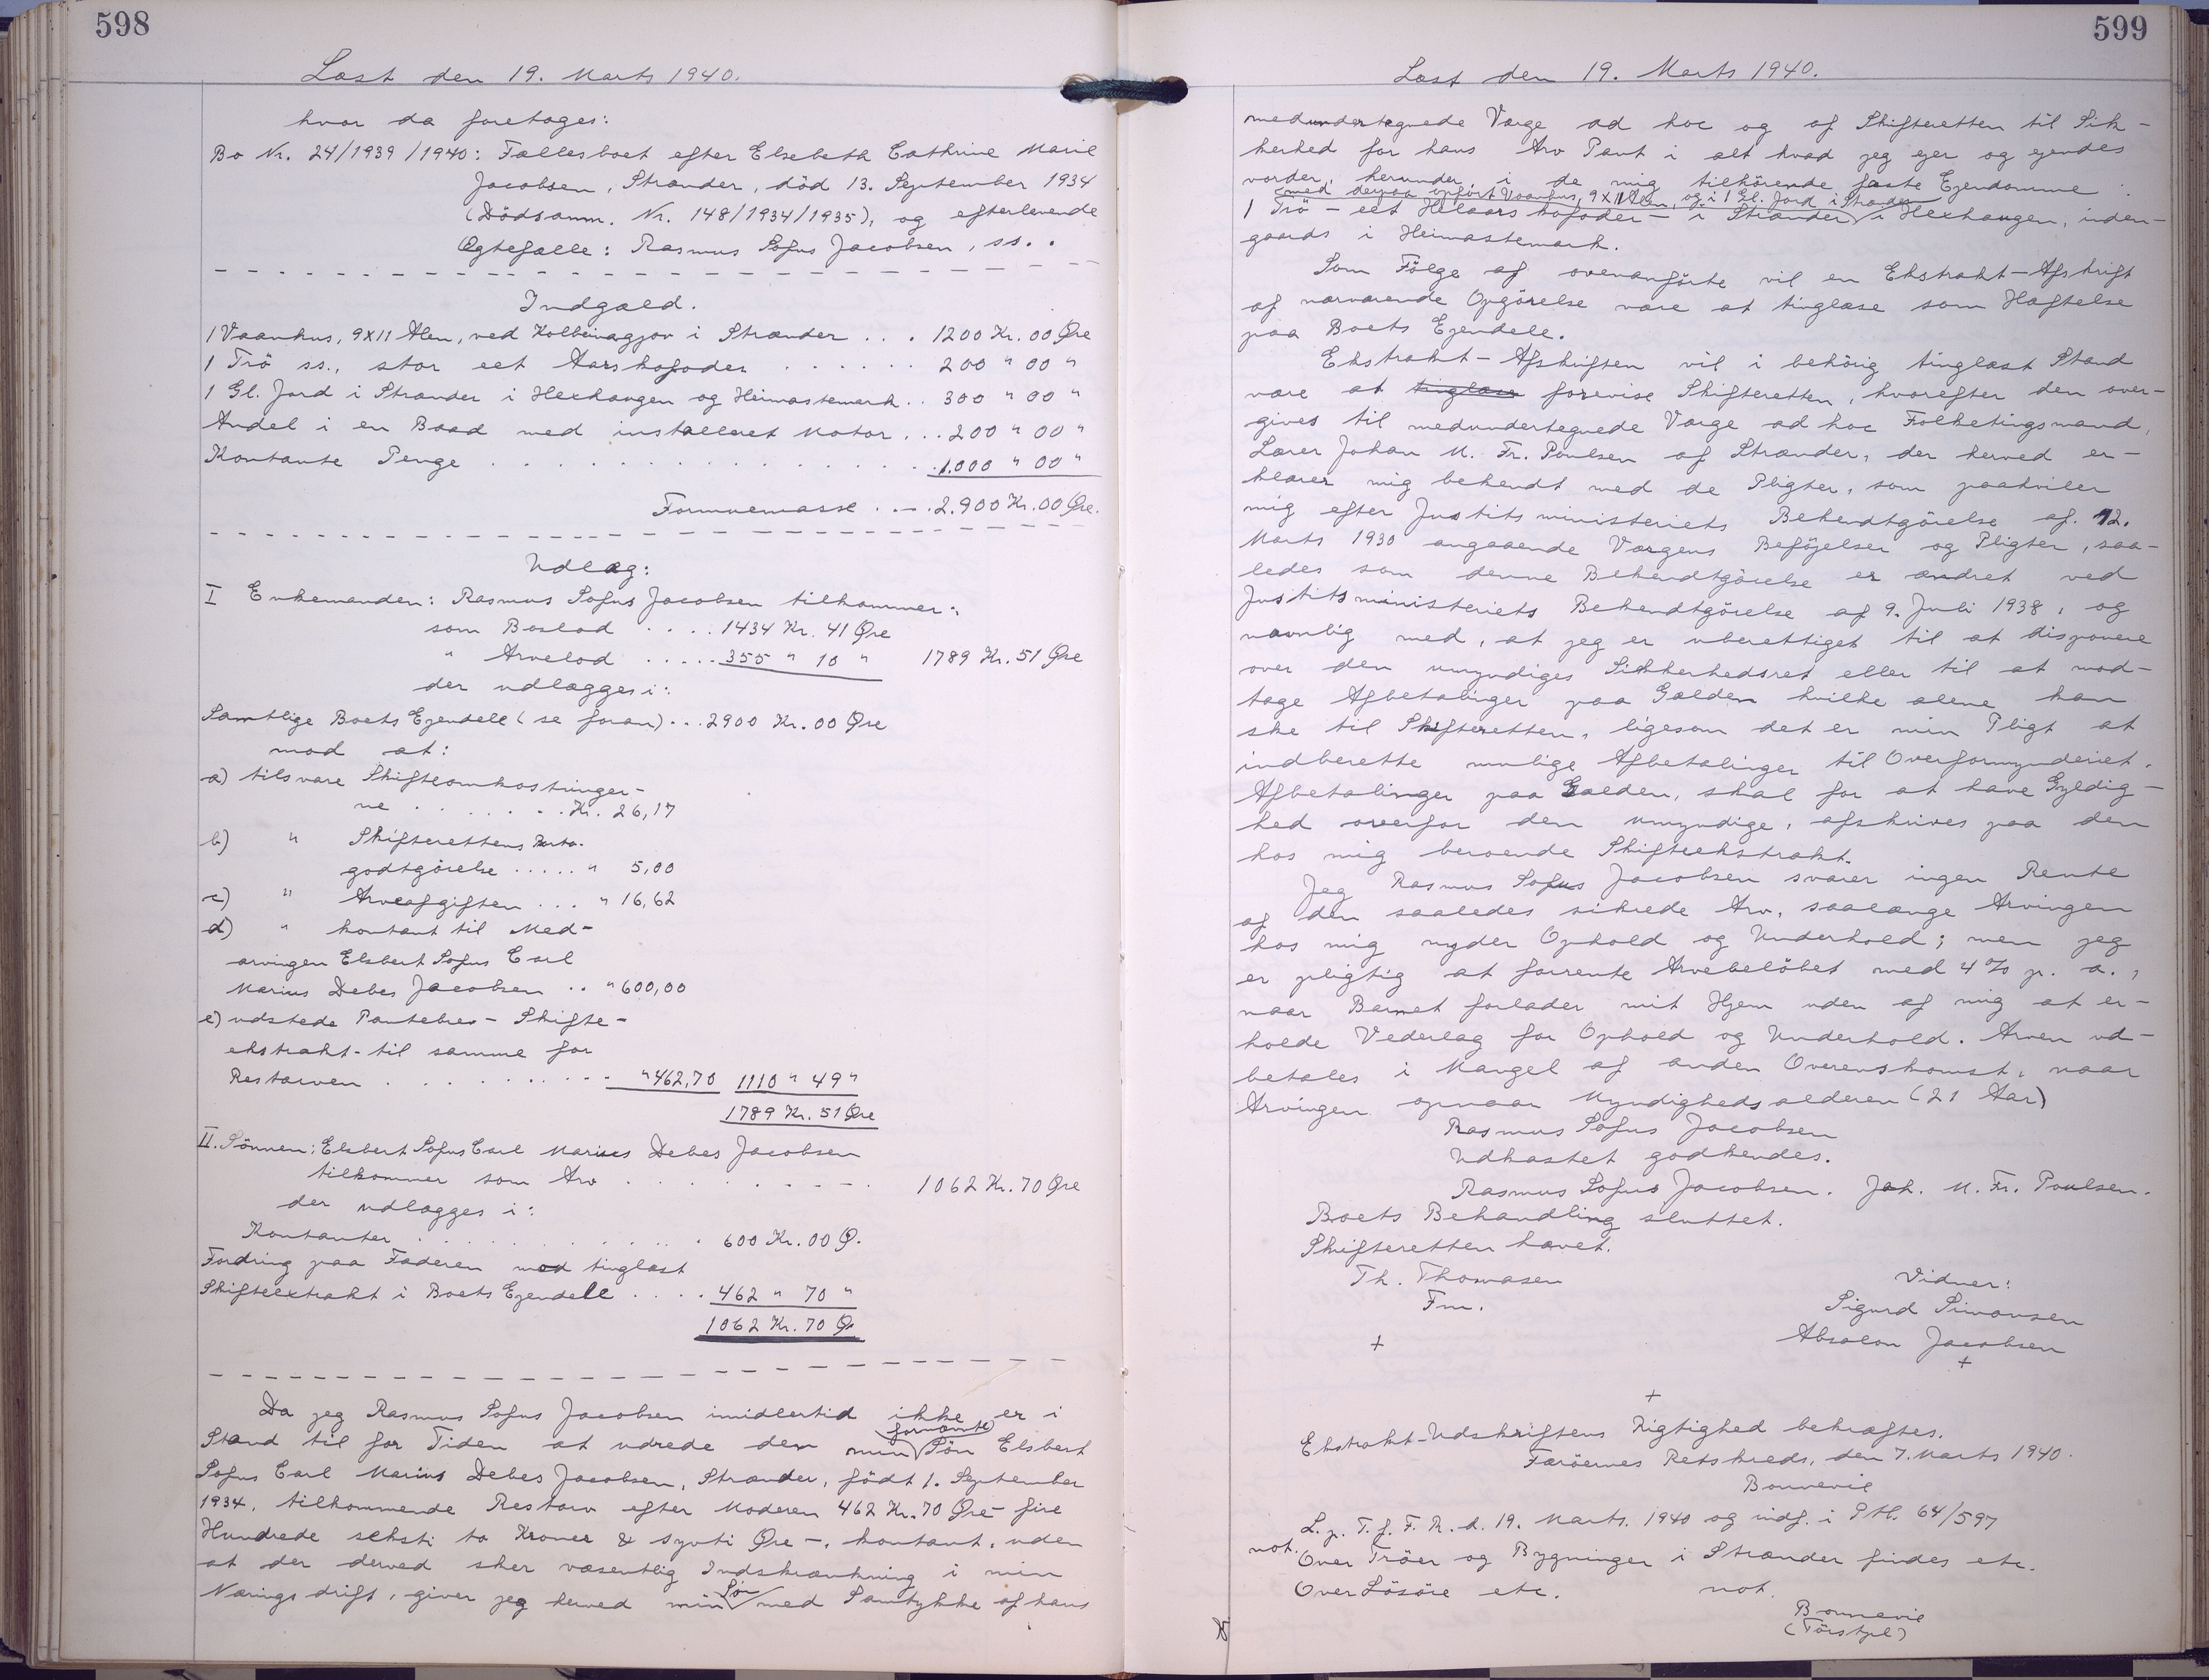 598
Læst den 19. Marts 1940.
hvor da foretoges:
Bo Nr. 24/1939/1940: Fællesboet efter Elsebeth Cathrine Marie
Jacobsen, Strænder, död 13. September 1934
(Dödsanm. Nr. 148/1934/1935), og efterlevende
Ægtefælle: Rasmus Sofus Jacobsen, ss..
Indgæld.
1 Vaanhus, 9x11 Alen, ved Kolbeinagjov i Strænder . . . 1200 Kr. 00 Øre
1 Trö ss., stor eet Aarskofoder . . . . . . 200 " 00 "
1 Gl. Jord i Strænder i Hexhaugen og Heimastemark . . 300 " 00 "
Andel i en Baad med installeret Motor . . . 200 " 00 "
Kontante Penge . . . . . . . . . . . . . . 1.000 " 00 "
Formuemasse . . - . 2.900 Kr. 00 Øre.
Udlæg:
I Enkemanden: Rasmus Sofus Jacobsen tilkommer:
som Boslod . . . . 1434 Kr. 41 Øre
" Arvelod . . . . . 355 " 10 " 1789 Kr. 51 Øre
der udlægges i:
Samtlige Boets Ejendele (se foran) . . . 2900 Kr. 00 Øre
mod at:
a) tilsvare Skifteomkostninger-
ne . . . . . . Kr. 26,17
b) " Skifterettens
godtgörelse . . . . . " 5,00
c) " Arveafgiften . . . " 16,62
d) " kontant til Med-
arvingen Elsbert Sofus Carl
Marius Debes Jacobsen . . " 600,00
e) udstede Pantebrev - Skifte-
ekstrakt - til samme for
Restarven . . . . . . . . . "462,70 1110 " 49 "
1789 Kr. 51 Øre
II. Sönnen: Elsbert Sofus Carl Marius Debes Jacobsen
tilkommer som Arv . . . . . . . . . 1062 Kr. 70 Øre
der udlægges i:
Kontanter . . . . . . . . . . . 600 Kr. 00 Ø.
Fordring paa Faderen mod tinglæst
Skifteextrakt i Boets Ejendele . . . . 462 " 70 "
1062 Kr. 70 Ø
Da jeg Rasmus Sofus Jacobsen imidlertid ikke er i
Stand til for Tiden at udrede den min fornævnte Sön Elsbert
Sofus Carl Marius Debes Jacobsen, Strænder, födt 1. September
1934, tilkommende Restarv efter Moderen 462 Kr. 70 Øre - fire
Hundrede seksti to Kroner & syvti Øre -, kontant, uden
at der derved sker væsentlig Indskrænkning i min
Næringsdrift, giver jeg herved min Sön med Samtykke af hans
599
Læst den 19. Marts 1940.
medundertegnede Værge ad hoc og af Skifteretten til Sik-
kerhed for hans Arv Pant i alt hvad jeg ejer og ejendes
vorder, herunder i de mig tilhörende faste Ejendomme:
(med derpaa opfört Vaanhus, 9x11 Alen, og i 1 Gl. Jord i Strænder
1 Trö - eet Helaars kofoder - i Strænder i Hexhaugen, inden-
gaards i Heimastemark.
Som Fölge af ovenanförte vil en Ekstrakt-Afskrift
af nærværende Opgörelse være at tinglæse som Hæftelse
paa Boets Ejendele.
Ekstrakt-Afskriften vil i behörig tinglæst Stand
være at tinglæse forevise Skifteretten, hvorefter den over-
gives til medundertegnede Værge ad hoc Folketingsmand,
Lærer Johan M. Fr. Poulsen af Strænder, der herved er-
klærer mig bekendt med de Pligter, som paahviler
mig efter Justitsministeriets Bekendtgörelse af. 12.
Marts 1930 angaaende Værgens Beföjelser og Pligter, saa-
ledes som denne Bekendtgörelse er ændret ved
Justitsministeriets Bekendtgörelse af 9. Juli 1938, og
navnlig med, at jeg er uberettiget til at disponere
over den umyndiges Sikkerhedsret eller til at mod-
tage Afbetalinger paa Gælden hvilke alene kan
ske til Skifteretten, ligesom det er min Pligt at
indberette mulige Afbetalinger til Overformynderiet.
Afbetalinger paa Gælden, skal for at have Gyldig-
hed overfor den umyndige, afskrives paa den
hos mig beroende Skifteekstrakt.
Jeg Rasmus Sofus Jacobsen svarer ingen Rente
af den saaledes sikrede Arv, saalænge Arvingen
hos mig nyder Ophold og Underhold; men jeg
er pligtig at forrente Arvebelöbet med 4% p. a.,
naar Barnet forlader mit Hjem uden af mig at er-
holde Vederlag for Ophold og Underhold. Arven ud-
betales i Mangel af anden Overenskomst, naar
Arvingen opnaar Myndighedsalderen (21 Aar)
Rasmus Sofus Jacobsen
Udkastet godkendes.
Rasmus Sofus Jacobsen. Joh. M. Fr. Poulsen.
Boets Behandling sluttet.
Skifteretten hævet.
Th. Thomasen
Fm.
Vidner:
Sigurd Simonsen
Absalon Jacobsen
+ + +
Ekstrakt-Udskriftens Rigtighed bekræftes.
Færöernes Retskreds, den 7. Marts 1940.
Bonnevie
L. p. T. f. F. R. d. 19. Marts. 1940 og indf. i Ptl. 64/597
not. Over Tröer og Bygninger i Strænder findes etc.
Over Lösöre etc. not.
Bonnevie